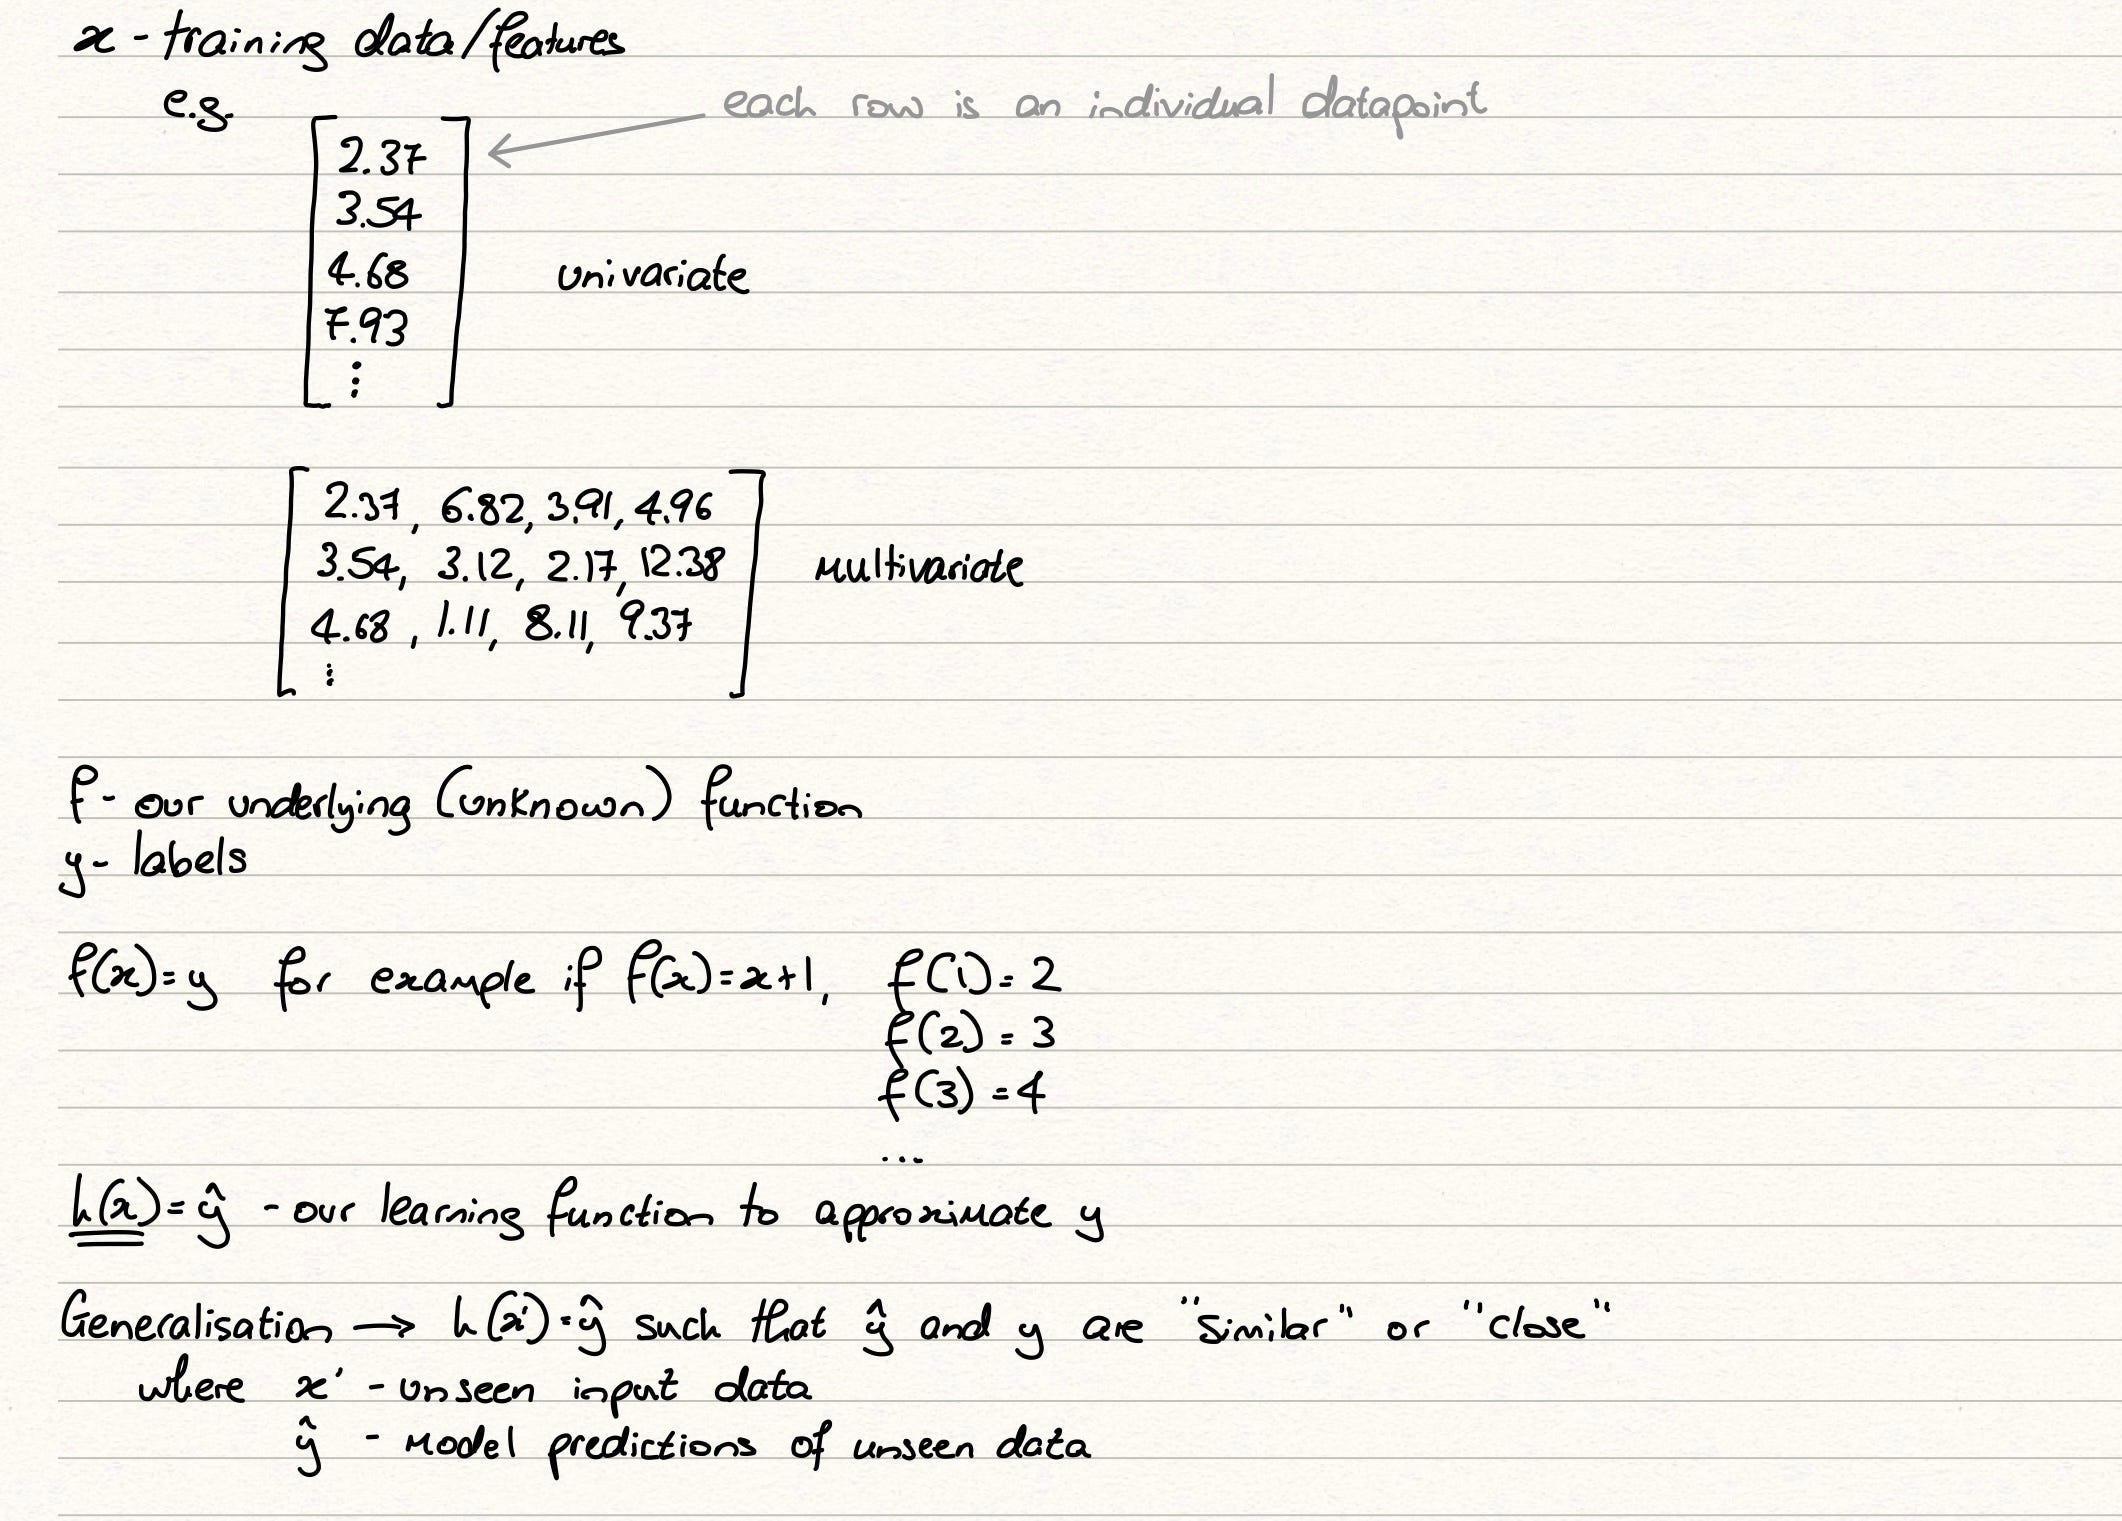 x - training data/features
e.g.
each row is an individual datapoint
2.37
3.54
4.68
univariate
7.93
⋮
2.37, 6.82, 3.91, 4.96
3.54, 3.12, 2.17, 12.38
multivariate
4.68, 1.11, 8.11, 9.37
⋮
f - our underlying (unknown) function
y - labels
f(x)=y for example if f(x)=x+1, f(1)=2
f(2)=3
f(3)=4
...
h(x)=ŷ - our learning function to approximate y
Generalisation → h(x')=ŷ such that ŷ and y are "similar" or "close"
where x' - unseen input data
ŷ - model predictions of unseen data